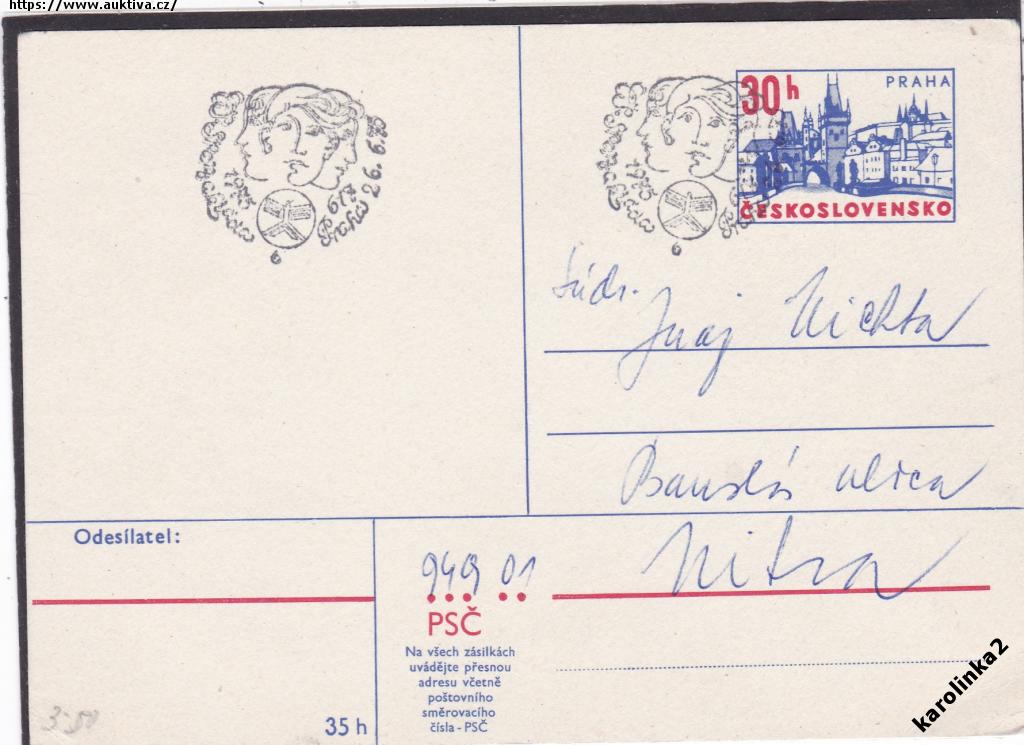 https://www.auktiva.cz/
Spartakiáda
1975
Praha 67
26. 6. 75
6
Spartakiáda
1975
6
30h
PRAHA
ČESKOSLOVENSKO
Súdr.
Juraj Michta
ulica
Nitra
Odesílatel:
949 01
PSČ
Na všech zásilkách
uvádějte přesnou
adresu včetně
poštovního
směrovacího
čísla - PSČ
35 h
3·50
karolinka2